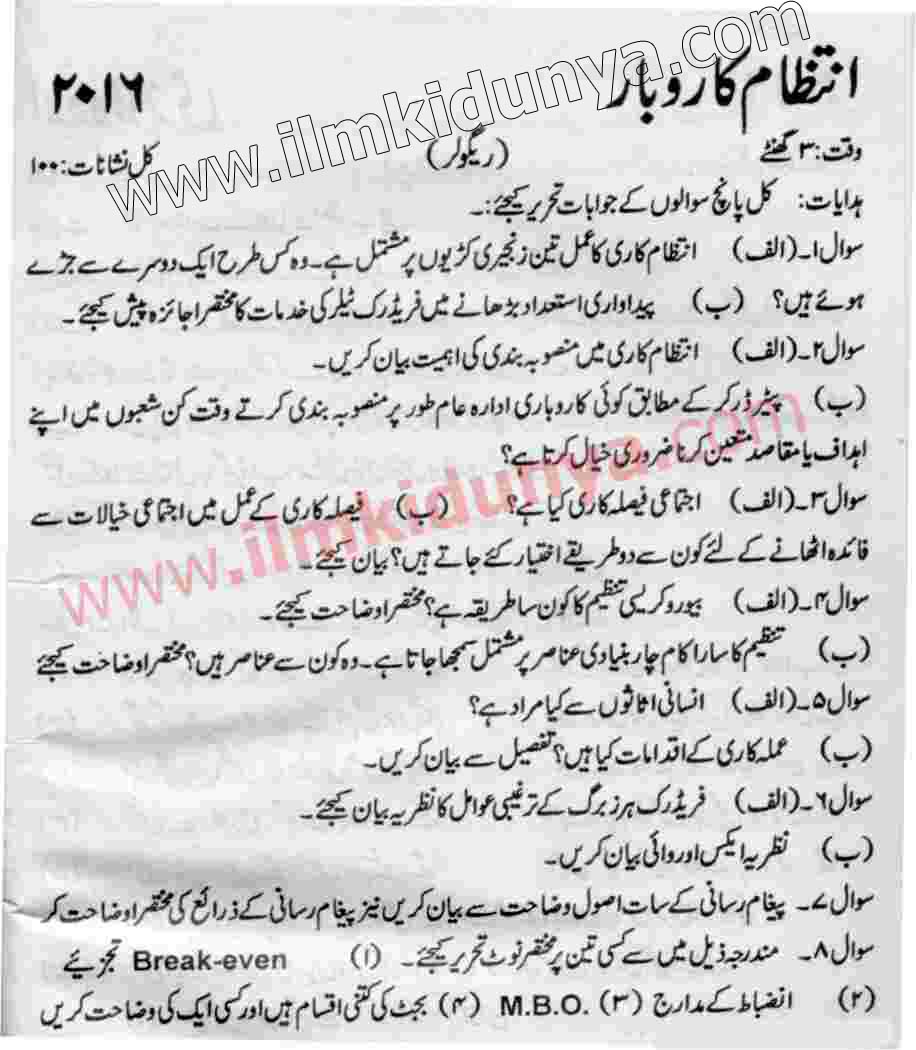 انتظام کاروبار ۲۰۱۶
www.ilmkidunya.com
وقت: ۳ گھنٹے (ریگولر) کل نشانات: ۱۰۰
ہدایات: کل پانچ سوالوں کے جوابات تحریر کیجئے:۔
سوال ۱۔ (الف) انتظام کاری کا عمل تین زنجیری کڑیوں پر مشتمل ہے۔ وہ کس طرح ایک دوسرے سے جڑے
ہوئے ہیں؟ (ب) پیداواری استعداد بڑھانے میں فریڈرک ٹیلر کی خدمات کا مختصراً جائزہ پیش کیجئے۔
سوال ۲۔ (الف) انتظام کاری میں منصوبہ بندی کی اہمیت بیان کریں۔
(ب) پیٹر ڈرکر کے مطابق کوئی کاروباری ادارہ عام طور پر منصوبہ بندی کرتے وقت کن شعبوں میں اپنے
اہداف یا مقاصد متعین کرنا ضروری خیال کرتا ہے؟
www.ilmkidunya.com
سوال ۳۔ (الف) اجتماعی فیصلہ کاری کیا ہے؟ (ب) فیصلہ کاری کے عمل میں اجتماعی خیالات سے
فائدہ اٹھانے کے لئے کون سے دو طریقے اختیار کئے جاتے ہیں؟ بیان کیجئے۔
سوال ۴۔ (الف) بیوروکریسی تنظیم کا کون سا طریقہ ہے؟ مختصر اوضاحت کیجئے۔
(ب) تنظیم کا سارا کام چار بنیادی عناصر پر مشتمل سمجھا جاتا ہے۔ وہ کون سے عناصر ہیں؟ مختصر اوضاحت کیجئے
سوال ۵۔ (الف) انسانی اثاثوں سے کیا مراد ہے؟
(ب) عملہ کاری کے اقدامات کیا ہیں؟ تفصیل سے بیان کریں۔
سوال ۶۔ (الف) فریڈرک ہرزبرگ کے ترغیبی عوامل کا نظریہ بیان کیجئے۔
(ب) نظریہ ایکس اور وائی بیان کریں۔
سوال ۷۔ پیغام رسانی کے سات اصول وضاحت سے بیان کریں نیز پیغام رسانی کے ذرائع کی مختصر اوضاحت کر
سوال ۸۔ مندرجہ ذیل میں سے کسی تین پر مختصر نوٹ تحریر کیجئے۔ (۱) Break-even تجزئیے
(۲) انضباط کے مدارج (۳) M.B.O. (۴) بجٹ کی کتنی اقسام ہیں اور کسی ایک کی وضاحت کریں